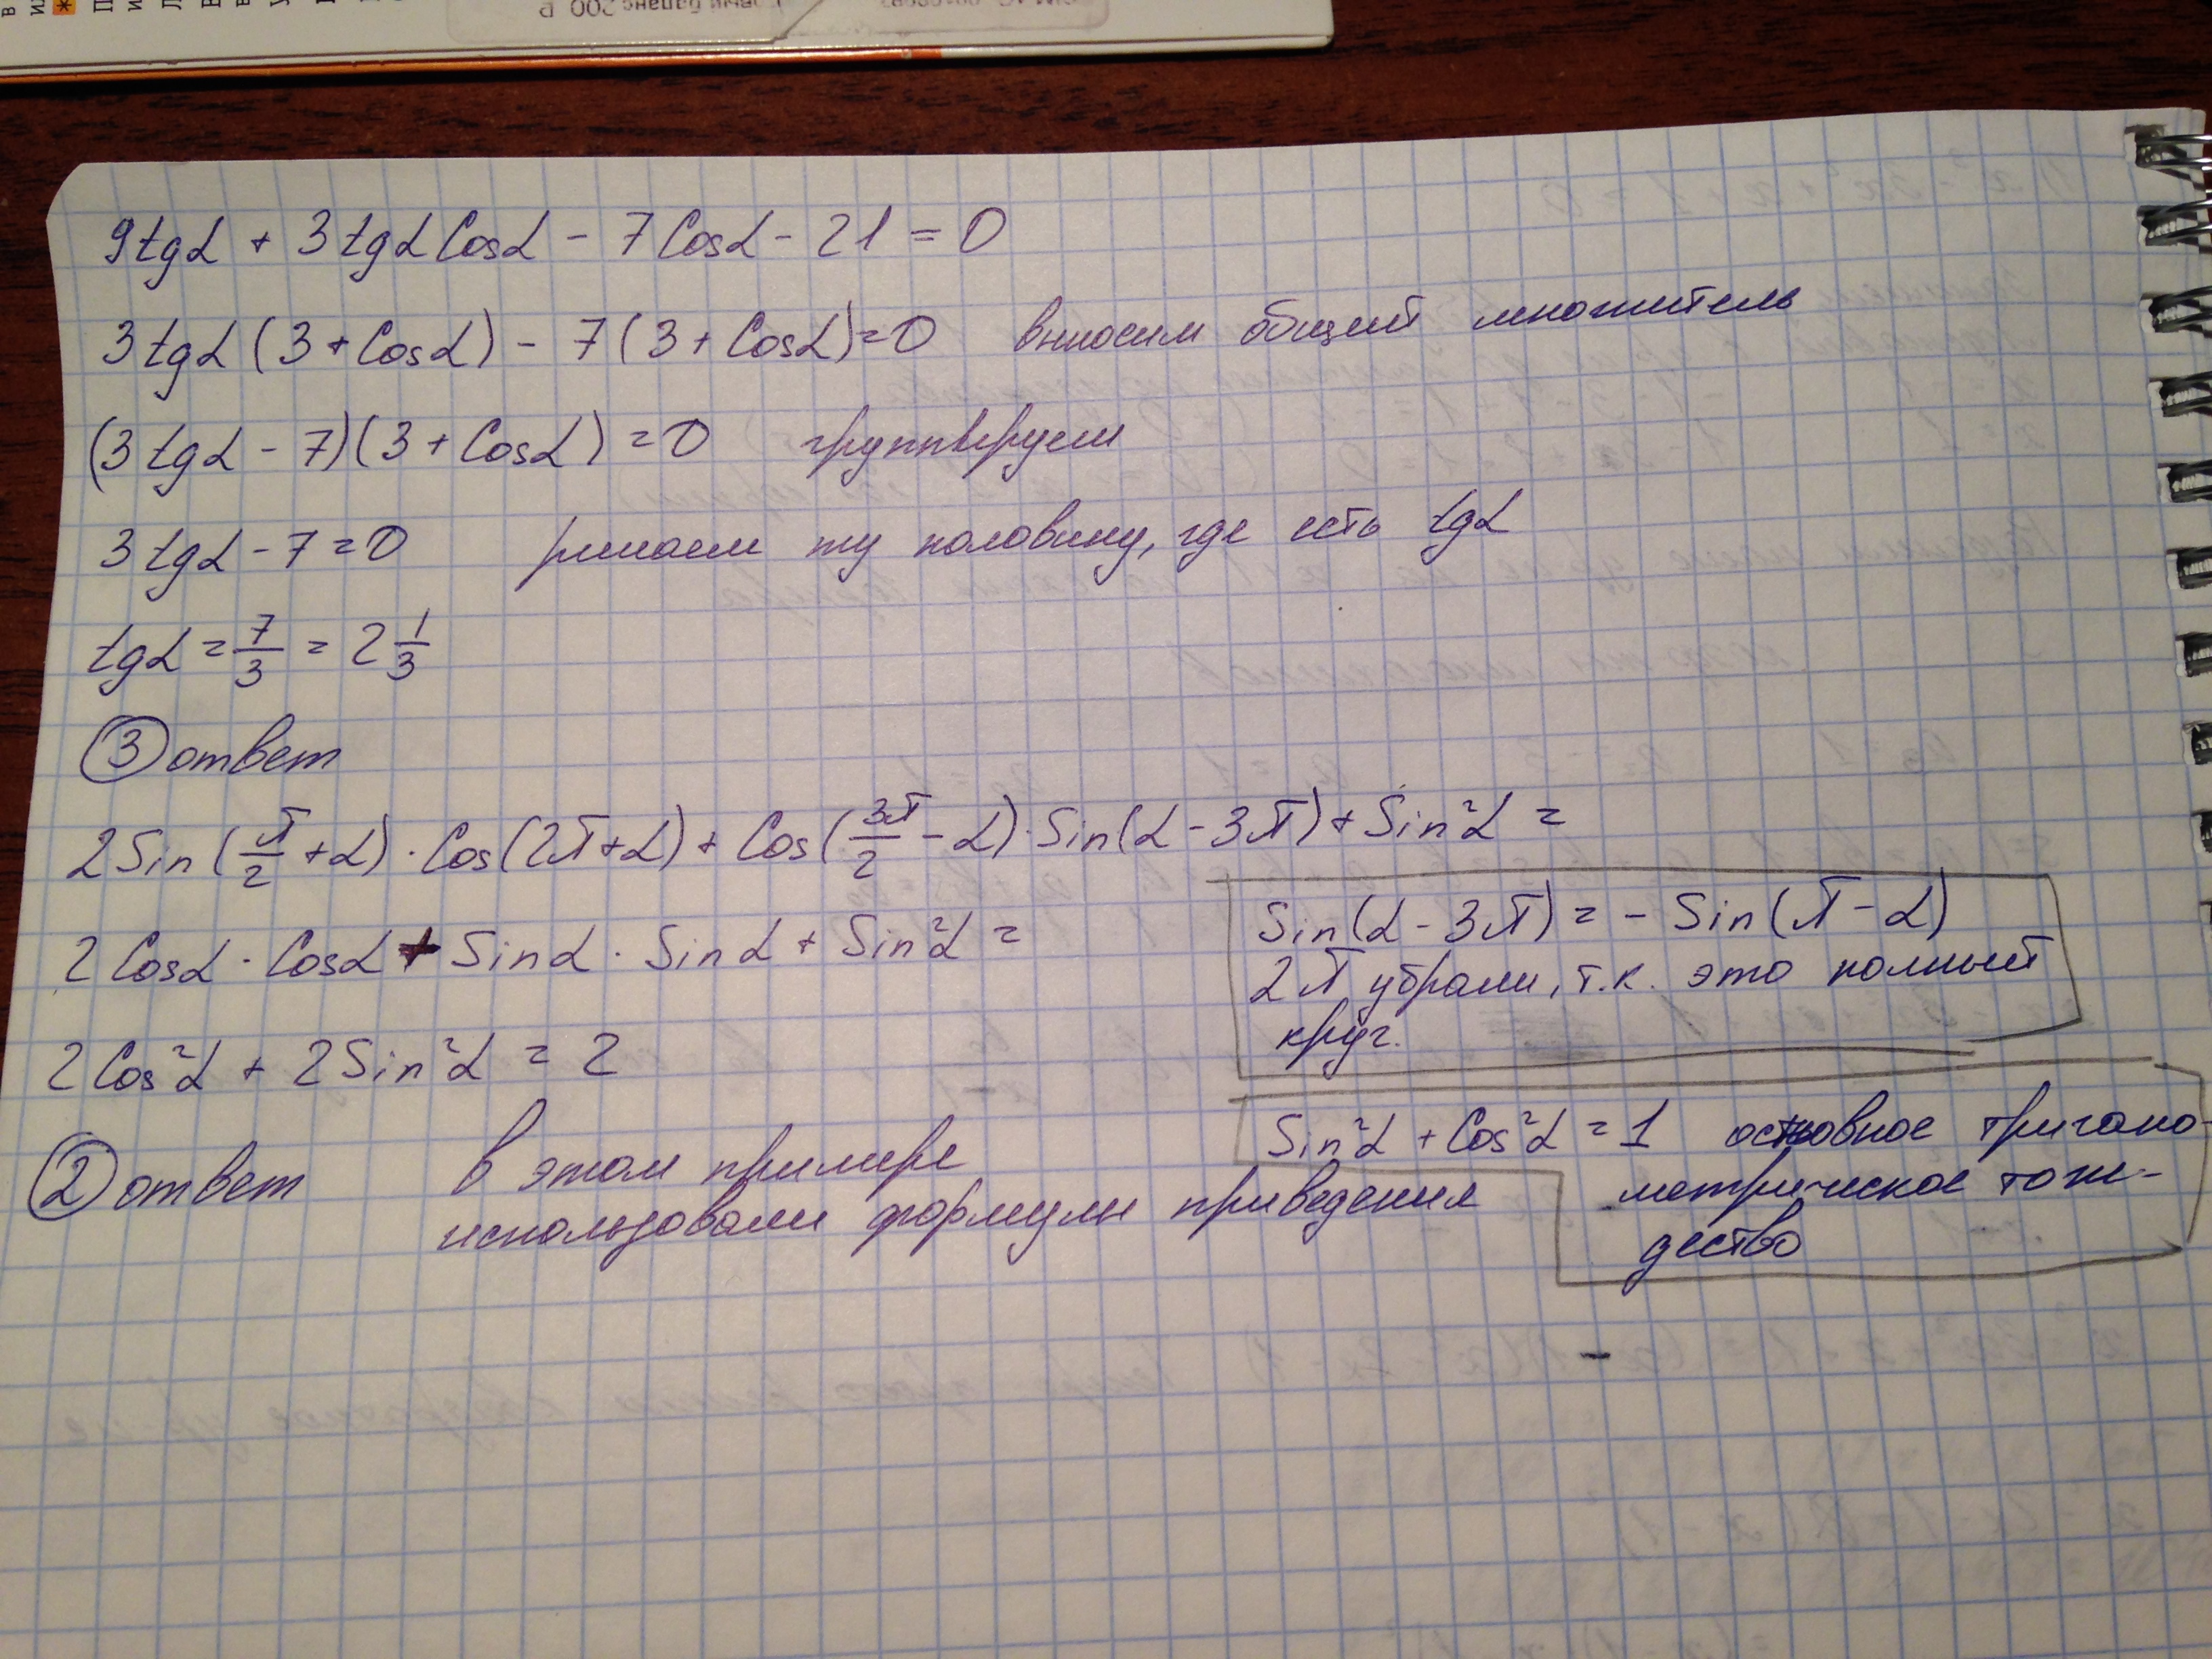 9tgα + 3tgα Cosα - 7Cosα - 21 = 0
3tgα(3 + Cosα) - 7(3 + Cosα) = 0 выносим общий множитель
(3tgα - 7)(3 + Cosα) = 0 группируем
3tgα - 7 = 0 решаем ту половину, где есть tgα
tgα = 7/3 = 2 1/3
③ ответ
2Sin(π/2 + α) · Cos(2π + α) + Cos(3π/2 - α) · Sin(α - 3π) + Sin²α =
2Cosα · Cosα + Sinα · Sinα + Sin²α =
Sin(α - 3π) = - Sin(π - α)
2π убрали, т.к. это полный
круг.
2Cos²α + 2Sin²α = 2
Sin²α + Cos²α = 1 основное тригоно-
метрическое тож-
дество
② ответ
в этом примере
использовали формулы приведения